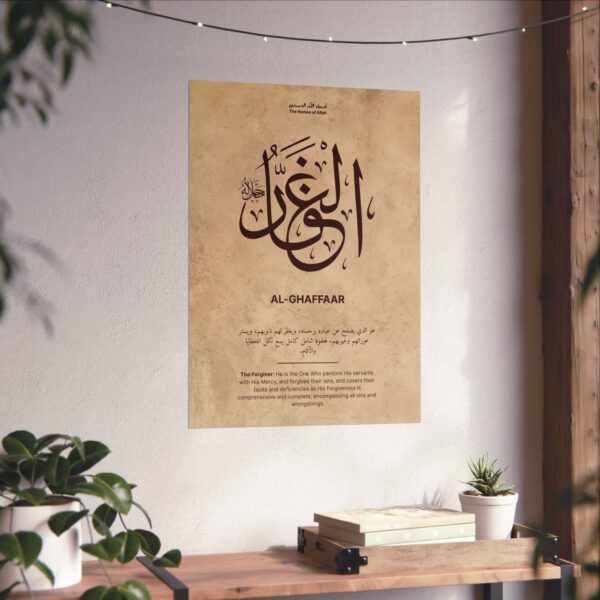 أسماء الله الحسنى
The Names of Allah
الغفار
جل جلاله
AL-GHAFFAAR
هو الذي يصفح عن عباده ورحمته، ويغفر لهم ذنوبهم، ويستر
عوراتهم وعيوبهم، فعفوه شامل كامل يسع لكل الخطايا
والآثام.
The Forgiver: He is the One Who pardons His servants,
with His Mercy, and forgives their sins, and covers their
faults and deficiencies as His Forgiveness is
comprehensive and complete, encompassing all sins and
wrongdoings.
HOME